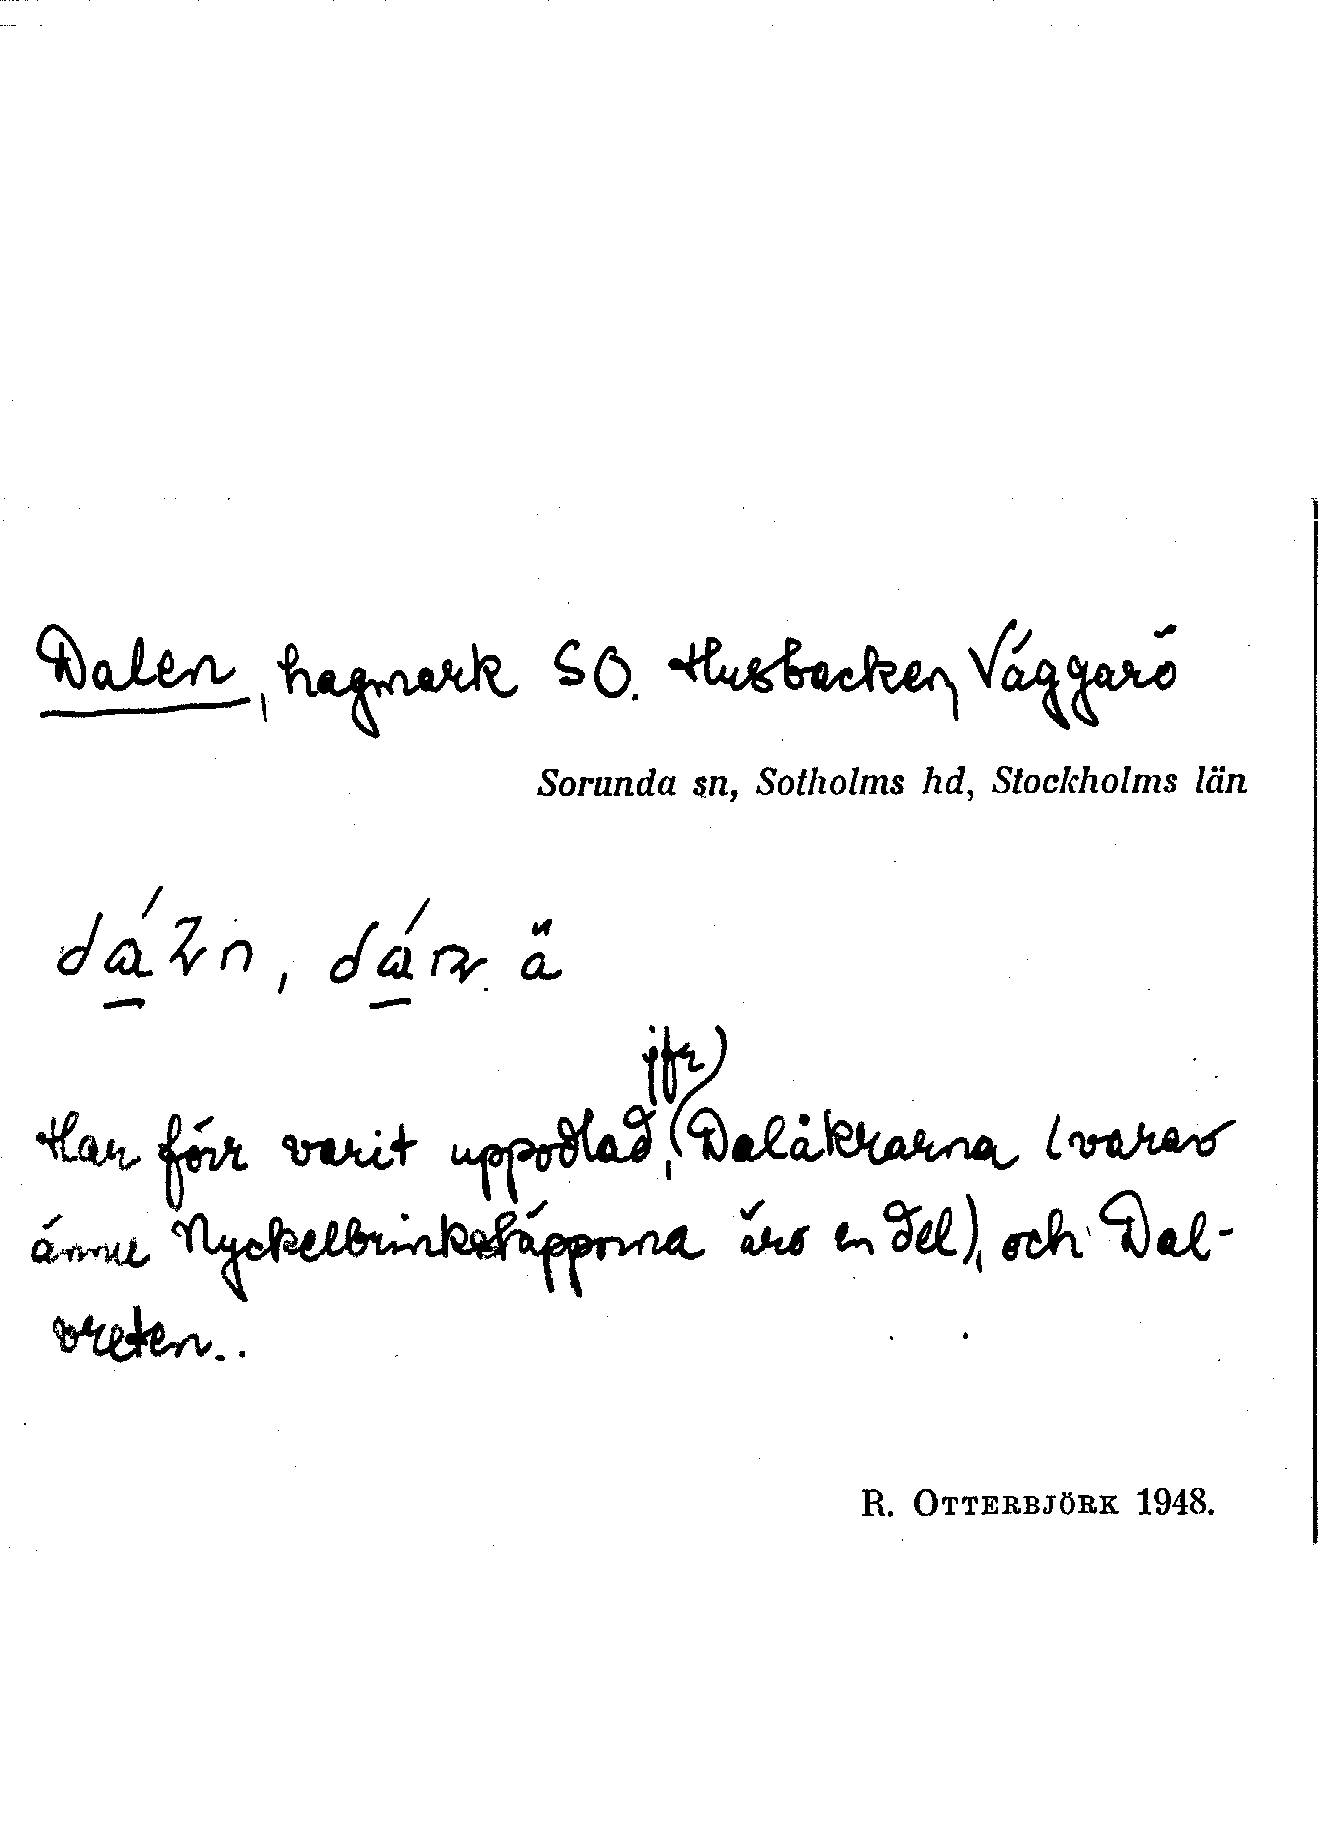 Dalen, hagmark SO. Husbacken, Väggarö
Sorunda sn, Sotholms hd, Stockholms län
jfr
Har förr varit uppodlad, Dalåkrarna (varav
ännu Nyckelbrinkstäpporna äro en del), och Dal-
vreten..
R. OTTERBJÖRK 1948.